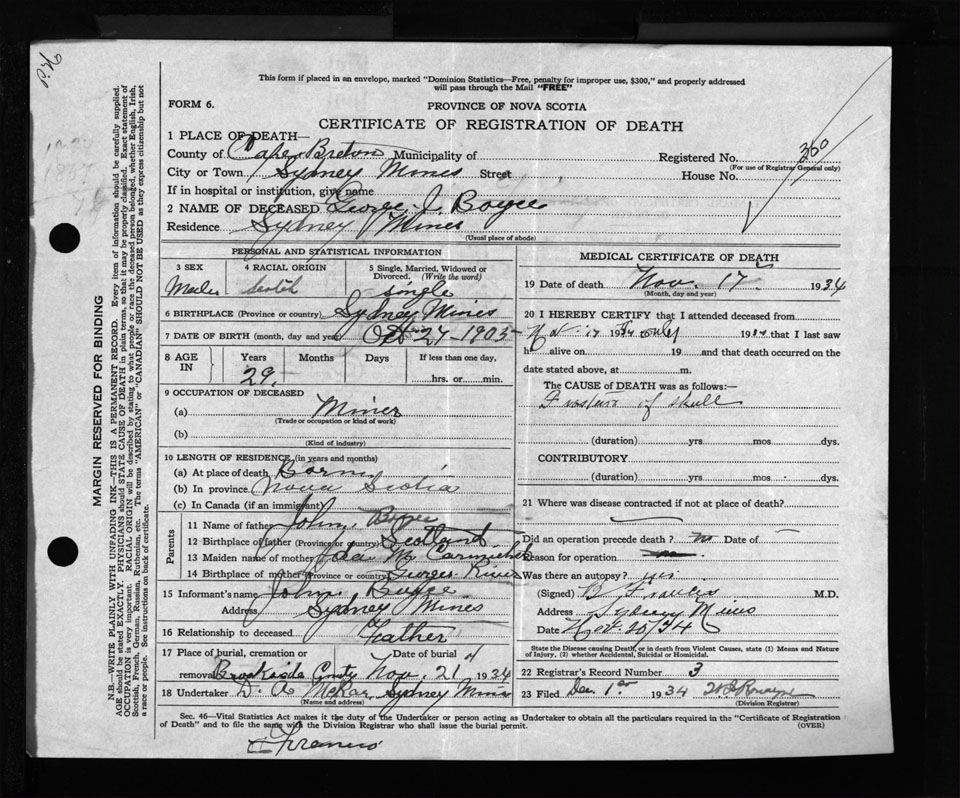 This form if placed in an envelope, marked "Dominion Statistics—Free, penalty for improper use, $300," and properly addressed
will pass through the Mail "FREE"
FORM 6.
PROVINCE OF NOVA SCOTIA
CERTIFICATE OF REGISTRATION OF DEATH
1 PLACE OF DEATH—
County of Cape Breton Municipality of Registered No. 360
(For use of Registrar General only)
City or Town Sydney Mines Street House No.
If in hospital or institution, give name
2 NAME OF DECEASED George J. Boyce
Residence Sydney Mines
(Usual place of abode)
PERSONAL AND STATISTICAL INFORMATION
3 SEX 4 RACIAL ORIGIN 5 Single, Married, Widowed or
Divorced. (Write the word)
Male Scotch single
6 BIRTHPLACE (Province or country) Sydney Mines
7 DATE OF BIRTH (month, day and year) Oct 27-1905
8 AGE IN Years Months Days If less than one day,
29 hrs. or min.
9 OCCUPATION OF DECEASED
(a) Miner
(Trade or occupation or kind of work)
(b)
(Kind of industry)
10 LENGTH OF RESIDENCE (in years and months)
(a) At place of death Born
(b) In province Nova Scotia
(c) In Canada (if an immigrant)
Parents
11 Name of father John Boyce
12 Birthplace of father (Province or country) Scotland
13 Maiden name of mother Ida Mc Carmichel
14 Birthplace of mother (Province or country) Georges River
15 Informant's name John Boyce
Address Sydney Mines
16 Relationship to deceased Feather
17 Place of burial, cremation or Date of burial
removal Nov 21 1934
18 Undertaker D. A. McRae Sydney Mines
(Name and address)
MEDICAL CERTIFICATE OF DEATH
19 Date of death Nov. 17 1934
(Month, day and year)
20 I HEREBY CERTIFY that I attended deceased from
Nov. 17 1934 only 19 that I last saw
h alive on 19 and that death occurred on the
date stated above, at m.
The CAUSE OF DEATH was as follows:—
Fracture of skull
(duration) yrs mos dys.
CONTRIBUTORY
(duration) yrs mos dys.
21 Where was disease contracted if not at place of death?
Did an operation precede death? no Date of
Reason for operation
Was there an autopsy? yes.
(Signed) M.D.
Address Sydney Mines
Date Nov. 20/34
State the Disease causing Death, or in death from Violent Causes, state (1) Means and Nature
of Injury, (2) whether Accidental, Suicidal or Homicidal.
22 Registrar's Record Number 3
23 Filed Dec 1st 1934
(Division Registrar)
Sec. 46—Vital Statistics Act makes it the duty of the Undertaker or person acting as Undertaker to obtain all the particulars required in the "Certificate of Registration
of Death" and to file the same with the Division Registrar who shall issue the burial permit. (OVER)
MARGIN RESERVED FOR BINDING
N.B.—WRITE PLAINLY WITH UNFADING INK—THIS IS A PERMANENT RECORD. Every item of information should be carefully supplied.
AGE should be stated EXACTLY. PHYSICIANS should STATE CAUSE OF DEATH in plain terms, so that it may be properly classified. Exact statement of
OCCUPATION is very important. RACIAL ORIGIN will be described by stating to what people or race the deceased person belonged, whether English, Irish,
Scottish, French, German, Russian, Ruthenian, etc. The terms "AMERICAN" or "CANADIAN" SHOULD NOT BE USED as they express citizenship but not
a race or people. See instructions on back of certificate.